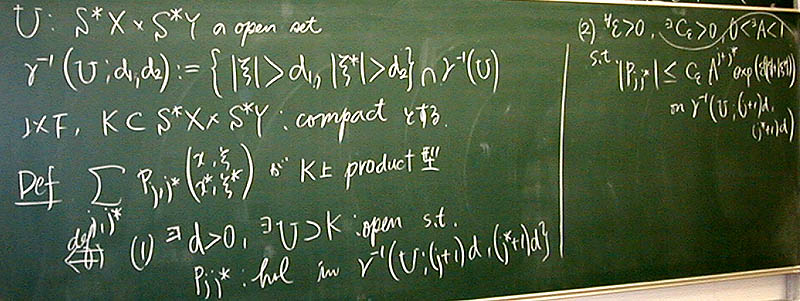 U : S*X × S*Y の open set
γ⁻¹(U; d₁, d₂) := { |ξ| > d₁, |ξ*| > d₂ } ∩ γ⁻¹(U)
以下, K ⊂ S*X × S*Y : compact とする.
Def Σ_{j,j*} P_{j,j*} (x, ξ / x*, ξ*) が K上 product 型
⇔(def) (1) ∃d>0, ∃U⊃K : open s.t.
P_{j,j*} : hol in γ⁻¹(U; (j+1)d, (j*+1)d}
(2) ∀ε>0, ∃C_ε>0, 0<∃A<1
s.t. |P_{j,j*}| ≤ C_ε A^{j+j*} exp(ε(|ξ|+|ξ*|))
on γ⁻¹(U; (j+1)d,
(j*+1)d)